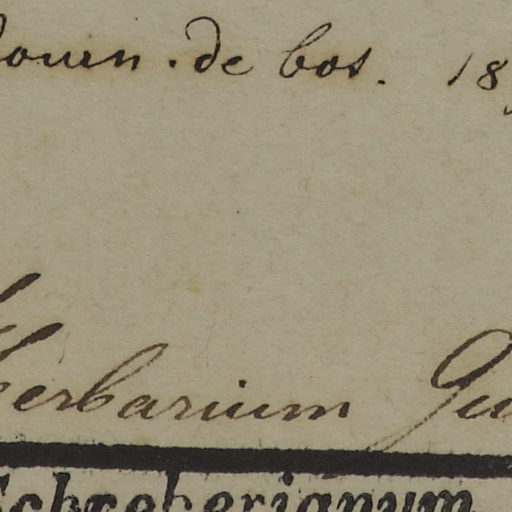 Journ. de bot. 18
Herbarium Gu
Schreberianum